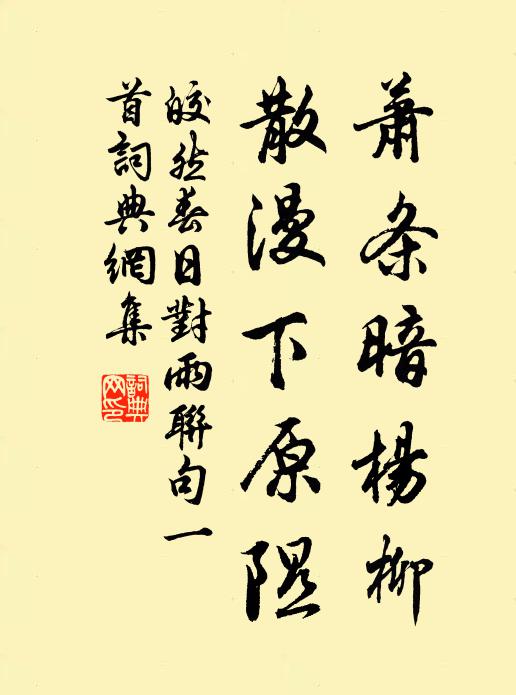 蕭条暗楊柳
散漫下原隰
皎然春日對雨聯句一
首詞典網集
詞典網印